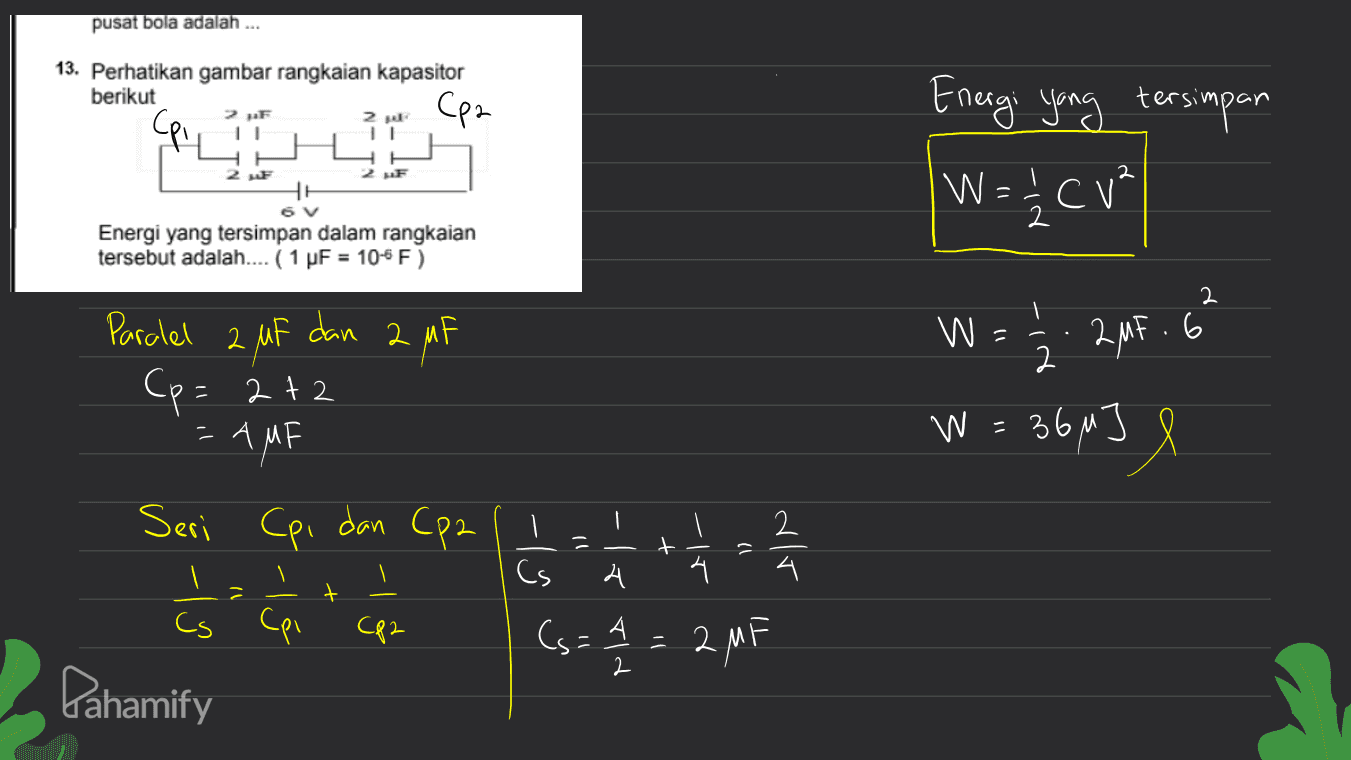 pusat bola adalah ...
13. Perhatikan gambar rangkaian kapasitor
berikut
Cp1 2 µF 2 µF Cp2
2 µF 2 µF
6 V
Energi yang tersimpan dalam rangkaian
tersebut adalah.... ( 1 µF = 10-6 F )
Paralel 2 µF dan 2 µF
Cp = 2 + 2
= 4 µF
Seri Cp1 dan Cp2
1/Cs = 1/Cp1 + 1/Cp2
1/Cs = 1/4 + 1/4 = 2/4
Cs = 4/2 = 2 µF
Energi yang tersimpan
W = 1/2 C V²
W = 1/2 . 2 µF . 6²
W = 36 µJ
Pahamify